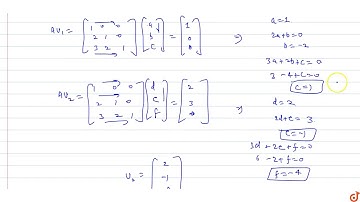 AU₁ = [1 0 0; 2 1 0; 3 2 1] [a; b; c] = [1; 0; 0] ⇒
a=1
2a+b=0
b=-2
3a+2b+c=0
3-4+c=0
c=1
AU₂ = [1 0 0; 2 1 0; 3 2 1] [d; e; f] = [2; 3; 0] ⇒
d=2
2d+e=3
e=-1
3d+2e+f=0
6-2+f=0
f=-4
U₂ = [2; -1
doubtnut